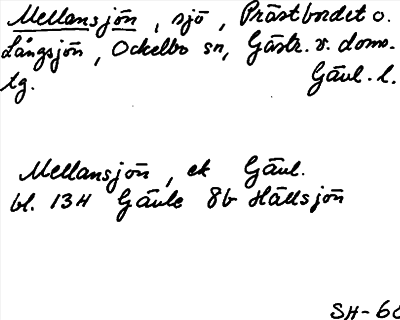 Mellansjön, sjö, Prästbordet o.
Långsjön, Ockelbo sn, Gästr. v. doms.
tg. Gävl. l.
Mellansjön, ek Gävl.
bl. 13H Gävle 8b Hållsjön
SH-66